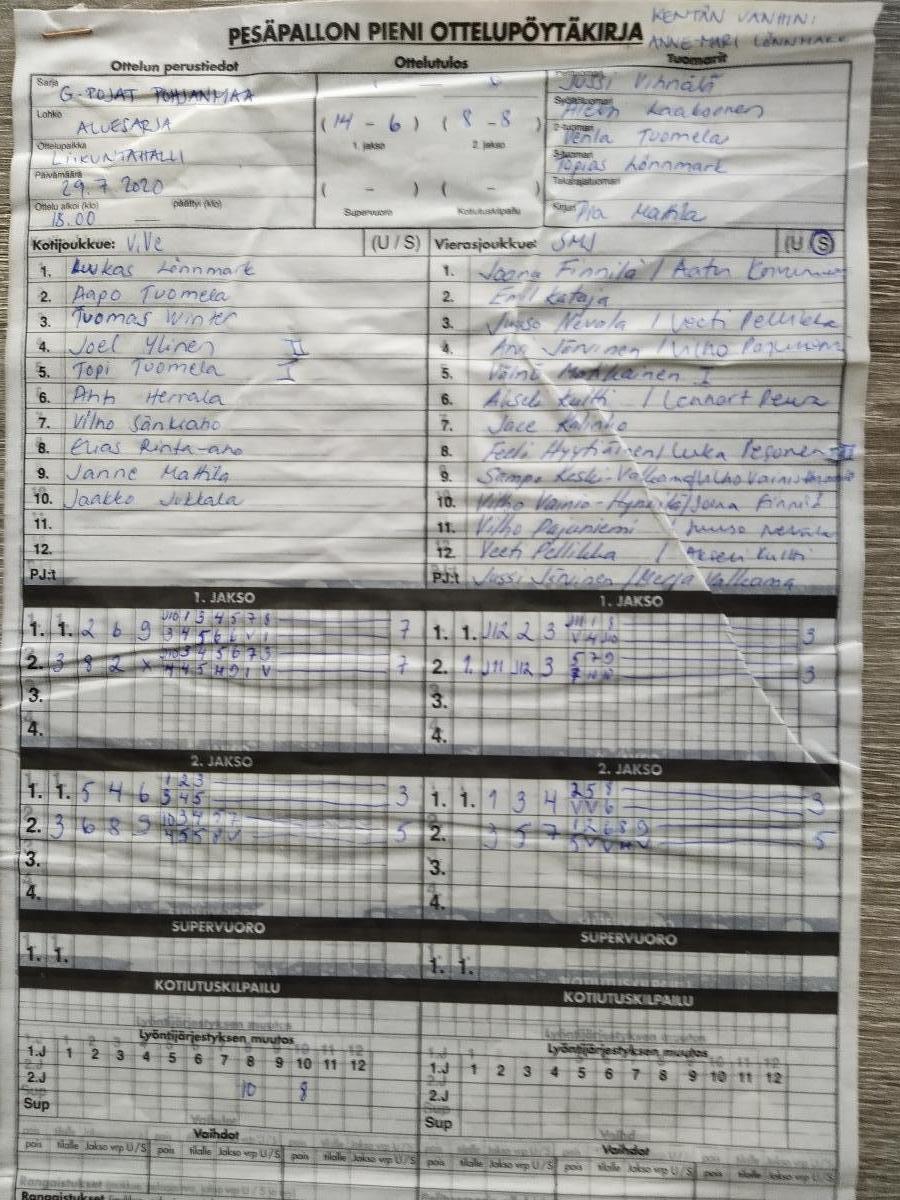 KENTÄN VANHIN:
PESÄPALLON PIENI OTTELUPÖYTÄKIRJA ANNE-MARI LÖNNMARK
Ottelun perustiedot Ottelutulos Tuomarit
Sarja G-POJAT POHJANMAA 1 - 0 Jussi Vihnälä
Lohko ALUESARJA (14 - 6) (8 - 8) Syöttötuomari Kaakonen
1. jakso 2. jakso
2-tuomari Venla Tuomela
Ottelupaikka LIIKUNTAHALLI 3-tuomari Topias Lönnmark
Päivämäärä 29.7.2020 ( - ) ( - ) Takarajatuomari
Ottelu alkoi (klo) 18.00 päättyi (klo) Supervuoro Kotiutuskilpailu Kirjuri Pia Mattila
Kotijoukkue: ViVe (U / S) Vierasjoukkue: SMJ (U S)
1. Luukas Lönnmark 1. Joona Finnilä / Aatu
2. Aapo Tuomela 2. Emil Kataja
3. Tuomas Winter 3. Juuso Nevala / Veeti Pellikka
4. Joel Ylinen II 4. Järvinen / Vilho Pajuniemi
5. Topi Tuomela I 5. Väinö I
6. Herrala 6. Akseli Kultti / Lennart
7. Vilho 7.
8. Elias Rinta-aho 8. Hyytiäinen / Luka Pesonen II
9. Janne Mattila 9. Sampo Keski-Valkama / Vilho
10. Jaakko Jukkala 10. Vilho / Joona Finnilä
11. 11. Vilho Pajuniemi / Juuso Nevala
12. 12. Veeti Pellikka / Akseli Kultti
PJ:t PJ:t Jussi Järvinen / Merja Valkama
1. JAKSO 1. JAKSO
1. 1. 2 6 9 J10 1 3 4 5 7 8 7 1. 1. J12 2 3 J11 1 8 3
3 4 5 6 6 V 1 V 4 J10
2. 3 8 2 X J10 3 4 5 6 7 9 7 2. 1. J11 J12 3 5 7 9 3
3. 3.
4. 4.
2. JAKSO 2. JAKSO
1. 1. 5 4 6 1 2 3 3 1. 1. 1 3 4 2 5 8 3
3 4 5 V V 6
2. 3 6 8 9 10 3 4 5 7 5 2. 3 5 7 1 2 6 8 9 5
4 5 5 8 V 5 V V H V
3. 3.
4. 4.
SUPERVUORO SUPERVUORO
1. 1. 1. 1.
KOTIUTUSKILPAILU KOTIUTUSKILPAILU
Lyöntijärjestyksen muutos Lyöntijärjestyksen muutos
1.J 1 2 3 4 5 6 7 8 9 10 11 12 1.J 1 2 3 4 5 6 7 8 9 10 11 12
2.J 10 8 2.J
Sup Sup
Vaihdot Vaihdot
pois tilalle Jakso vrp U / S pois tilalle Jakso vrp U / S pois tilalle Jakso vrp U / S pois tilalle Jakso vrp U / S pois tilalle Jakso vrp U / S pois tilalle Jakso vrp U / S
Rangaistukset